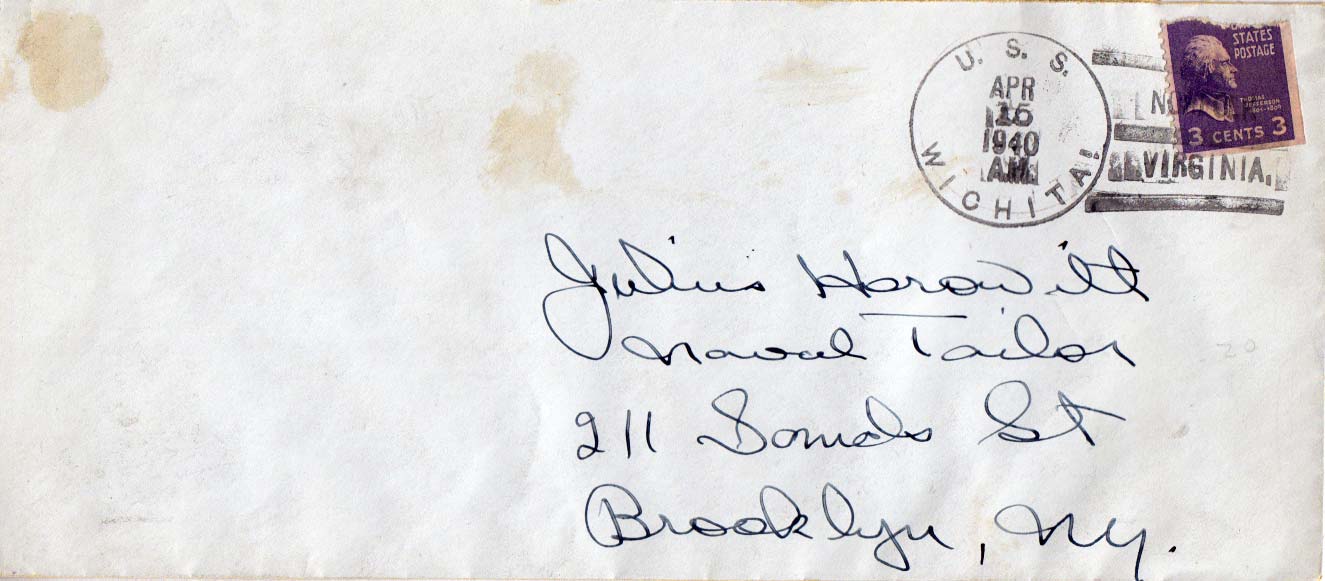 U. S. S.
APR
16
1940
A.M.
WICHITA!
VIRGINIA.
STATES
POSTAGE
THOMAS
JEFFERSON
3 CENTS 3
Julius Horowitt
Naval Tailor
211 Sands St
Brooklyn, NY.
20